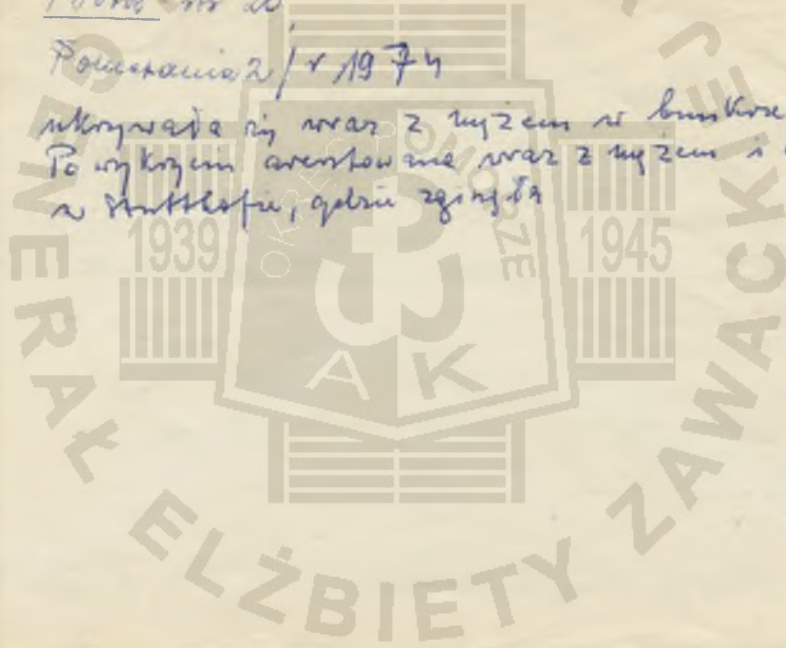 Pomerania 2/r 1974
ukrywała się wraz z mężem w bunkrze
Po wykryciu aresztowana wraz z mężem i
w Stutthofie, gdzie zginęła
1939
1945
OKRĘG POMORZE
AK
GENERAŁ ELŻBIETY ZAWACKIEJ